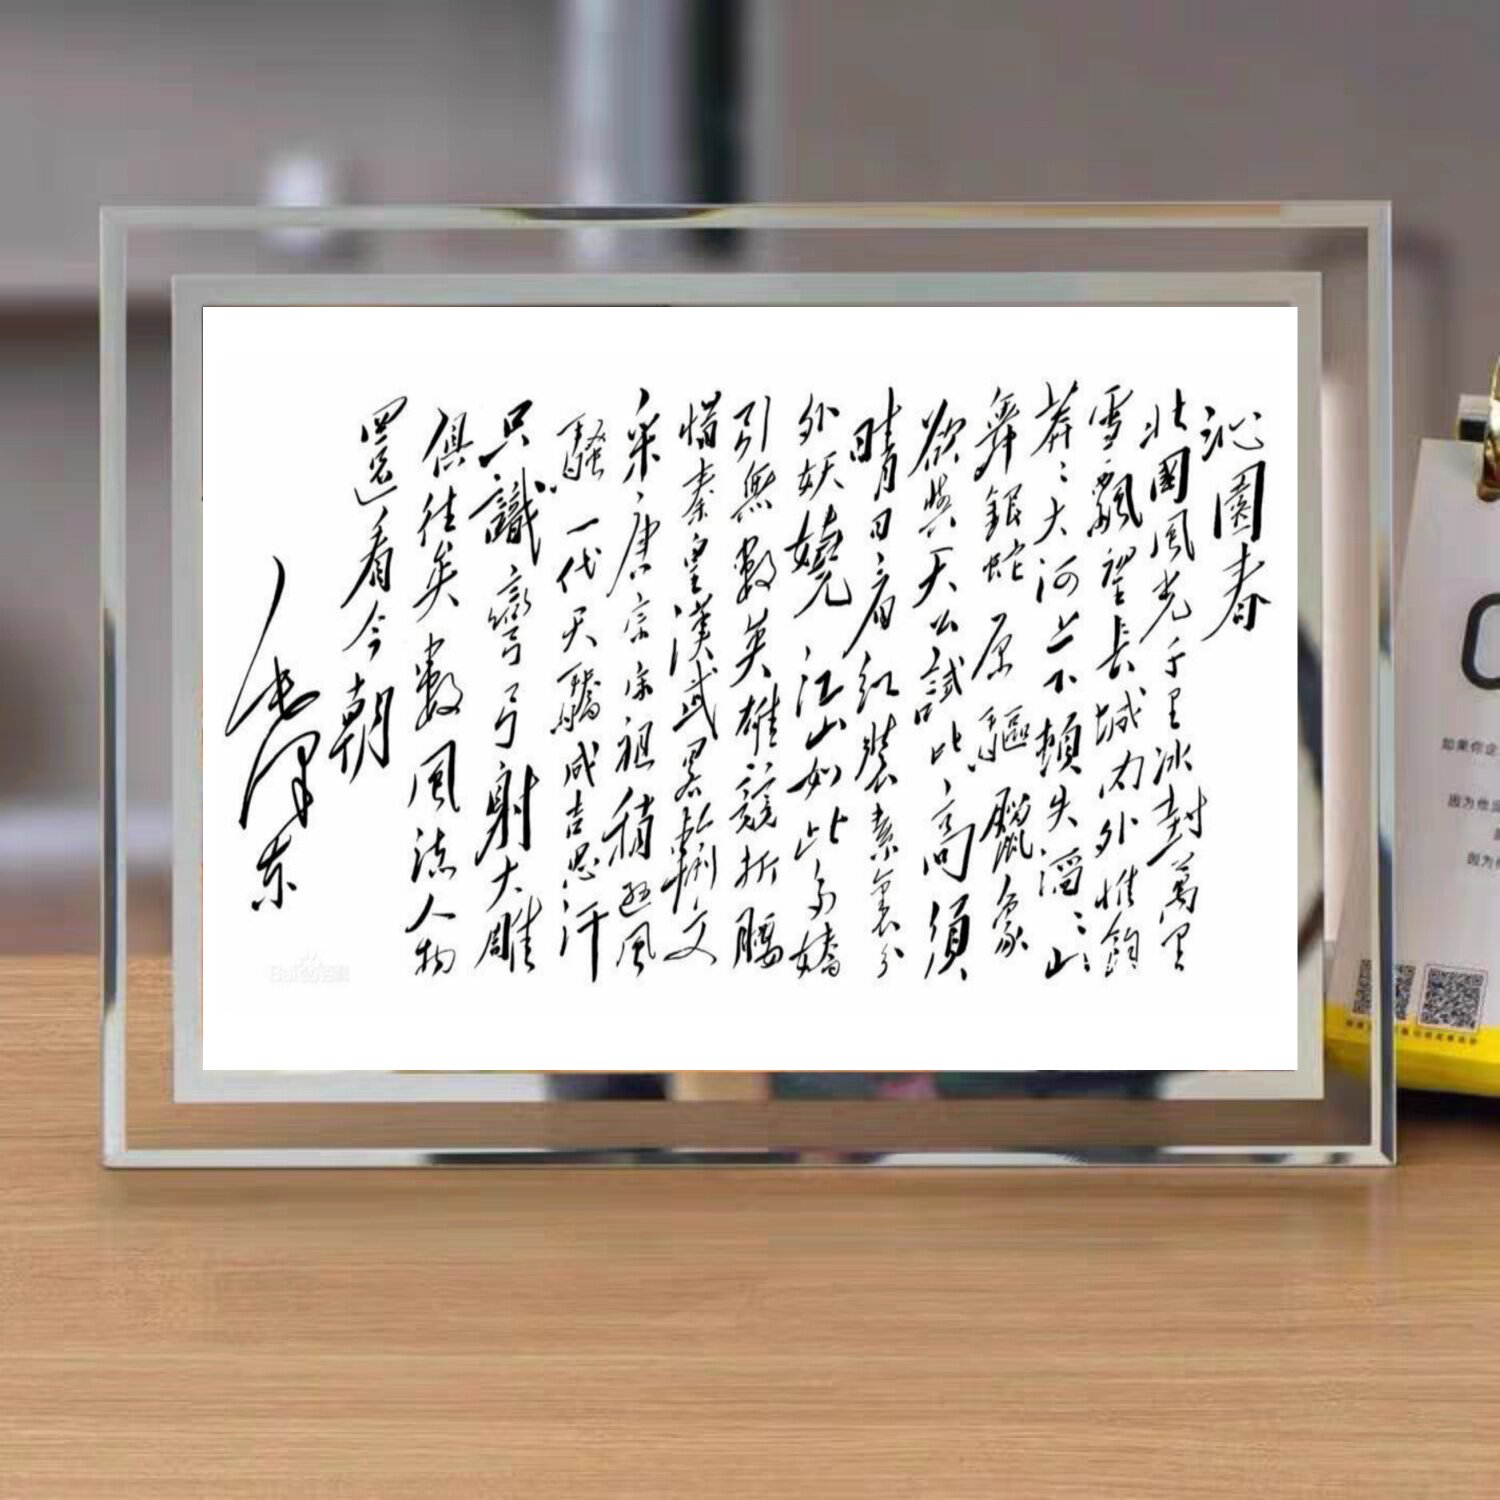 沁園春
北國風光千里冰封萬里
雪飄望長城内外惟餘
莽々大河上下頓失滔々山
舞銀蛇原驅臘象
欲與天公試比高須
晴日看紅裝素裹分
外妖嬈江山如此多嬌
引無數英雄競折腰
惜秦皇漢武略輸文
采唐宗宋祖稍遜風
騷一代天驕成吉思汗
只識彎弓射大雕
俱往矣數風流人物
還看今朝
毛澤东
Baidu百科
如果你企
因为他
因为